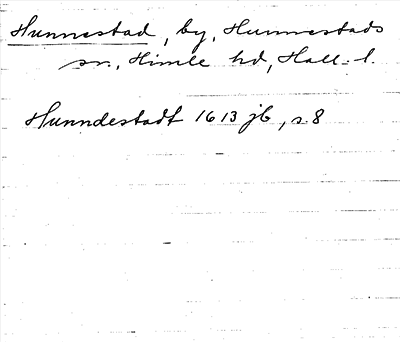 Hunnestad, by, Hunnestads
sn., Himle hd, Hall. l.
Hunndestadt 1613 jb, s. 8